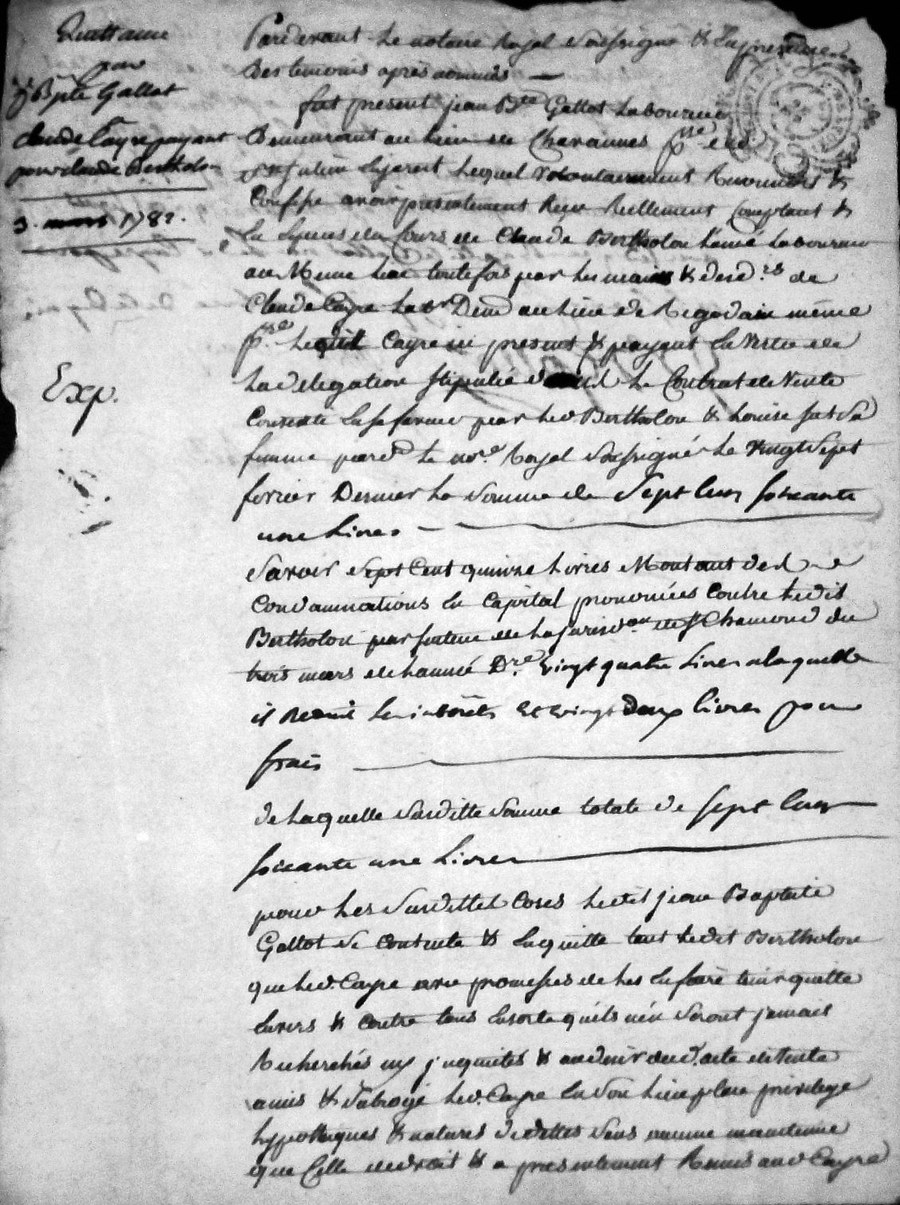 Quittance
par
J Bpte Gallot
Claude Cayre payant
pour claude Bertholon
3. mars 1782.
Exp.
Pardevant le notaire Royal soussigné & en presence
des temoins après nommés —
fut present jean Bte Gallot Laboureur
Demeurant au lieu de Chavannes psse de
st julien en jarest Lequel volontairement Reconnoit &
Confesse avoir présentement Reçu Reellement Comptant &
En Espèces du Cours de Claude Bertholon L'ainé Laboureur
au Meme lieu toutefois par les mains & des de
Claude Cayre Labr Demt au Lieu de même
psse Lequel Cayre ici present & payant En vertu de
La delegation stipulée Le Contrat de Vente
Consenti En sa faveur par led. Bertholon & Louise sa
femme pard. le nore Royal soussigné le Vingt Sept
fevrier Dernier La Somme de Sept Cent soixante
une Livres —
Savoir Sept Cent quinze Livres Montant des
Condamnations En Capital prononcées Contre Ledit
Bertholon par sentence de La jurison de st Chamond du
trois mars de L'année Dre. Vingt quatre Livres a laquelle
il Reduit Les interêts Et vingt Deux livres pour
frais —
de Laquelle Susditte Somme totale de Sept Cent
soixante une Livres
pour Les Susdittes Causes Ledit jean Baptiste
Gallot se Contente & En quitte tant Ledit Bertholon
que led. Cayre avec promesses de Les En faire tenir quitte
Envers & Contre tous Ensorte qu'ils n'en Seront jamais
Recherchés ny jnquietés & au de Vente
a mis & Subrogé led. Cayre En Son Lieu place privilege
hypotheques & natures de dettes Sans aucune maintenue
que Celle de droit & a présentement Remis aud Cayre